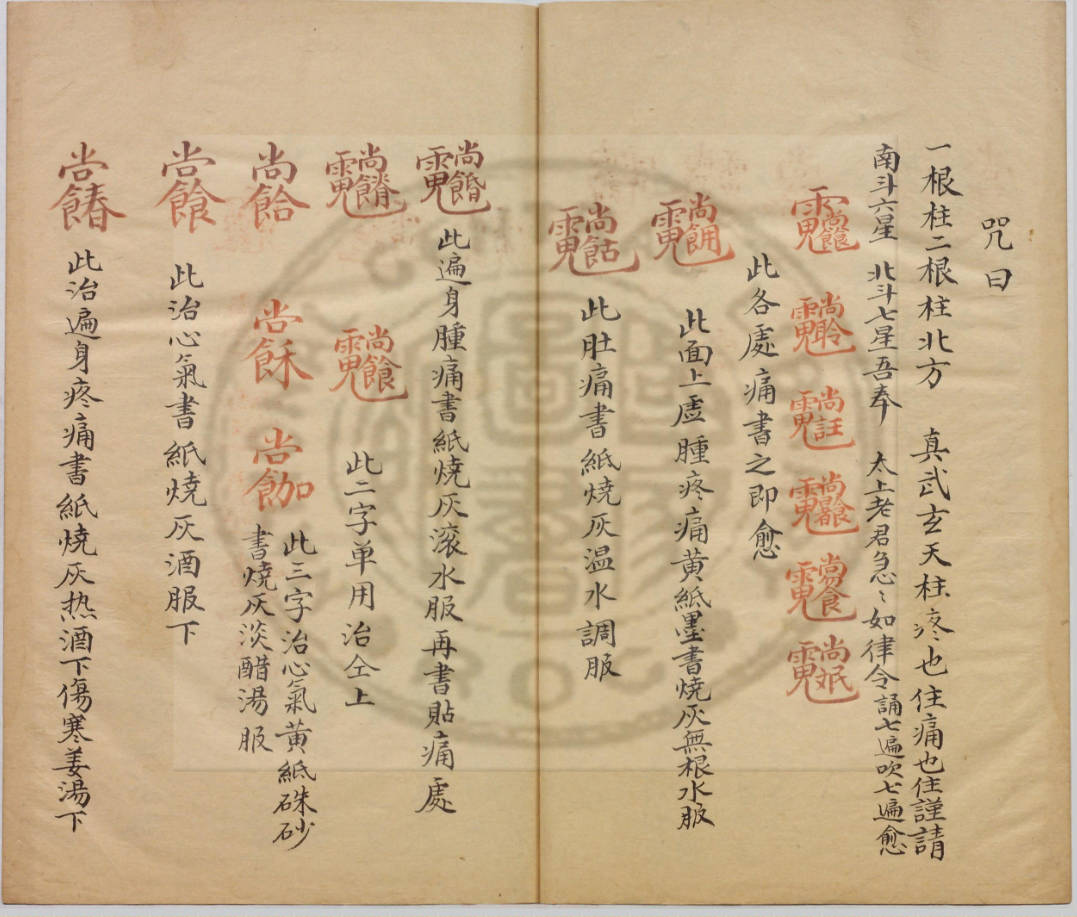 咒曰
一根柱二根柱北方 真武玄天柱疼也住痛也住謹請
南斗六星 北斗七星吾奉 太上老君急〻如律令誦七遍吹七遍愈
此各處痛書之即愈
此面上虛腫疼痛黄紙墨書燒灰無根水服
此肚痛書紙燒灰温水調服
此遍身腫痛書紙燒灰滚水服再書貼痛處
此二字单用治仝上
此三字治心氣黄紙硃砂
書燒灰淡醋湯服
此治心氣書紙燒灰酒服下
此治遍身疼痛書紙燒灰热酒下傷寒姜湯下